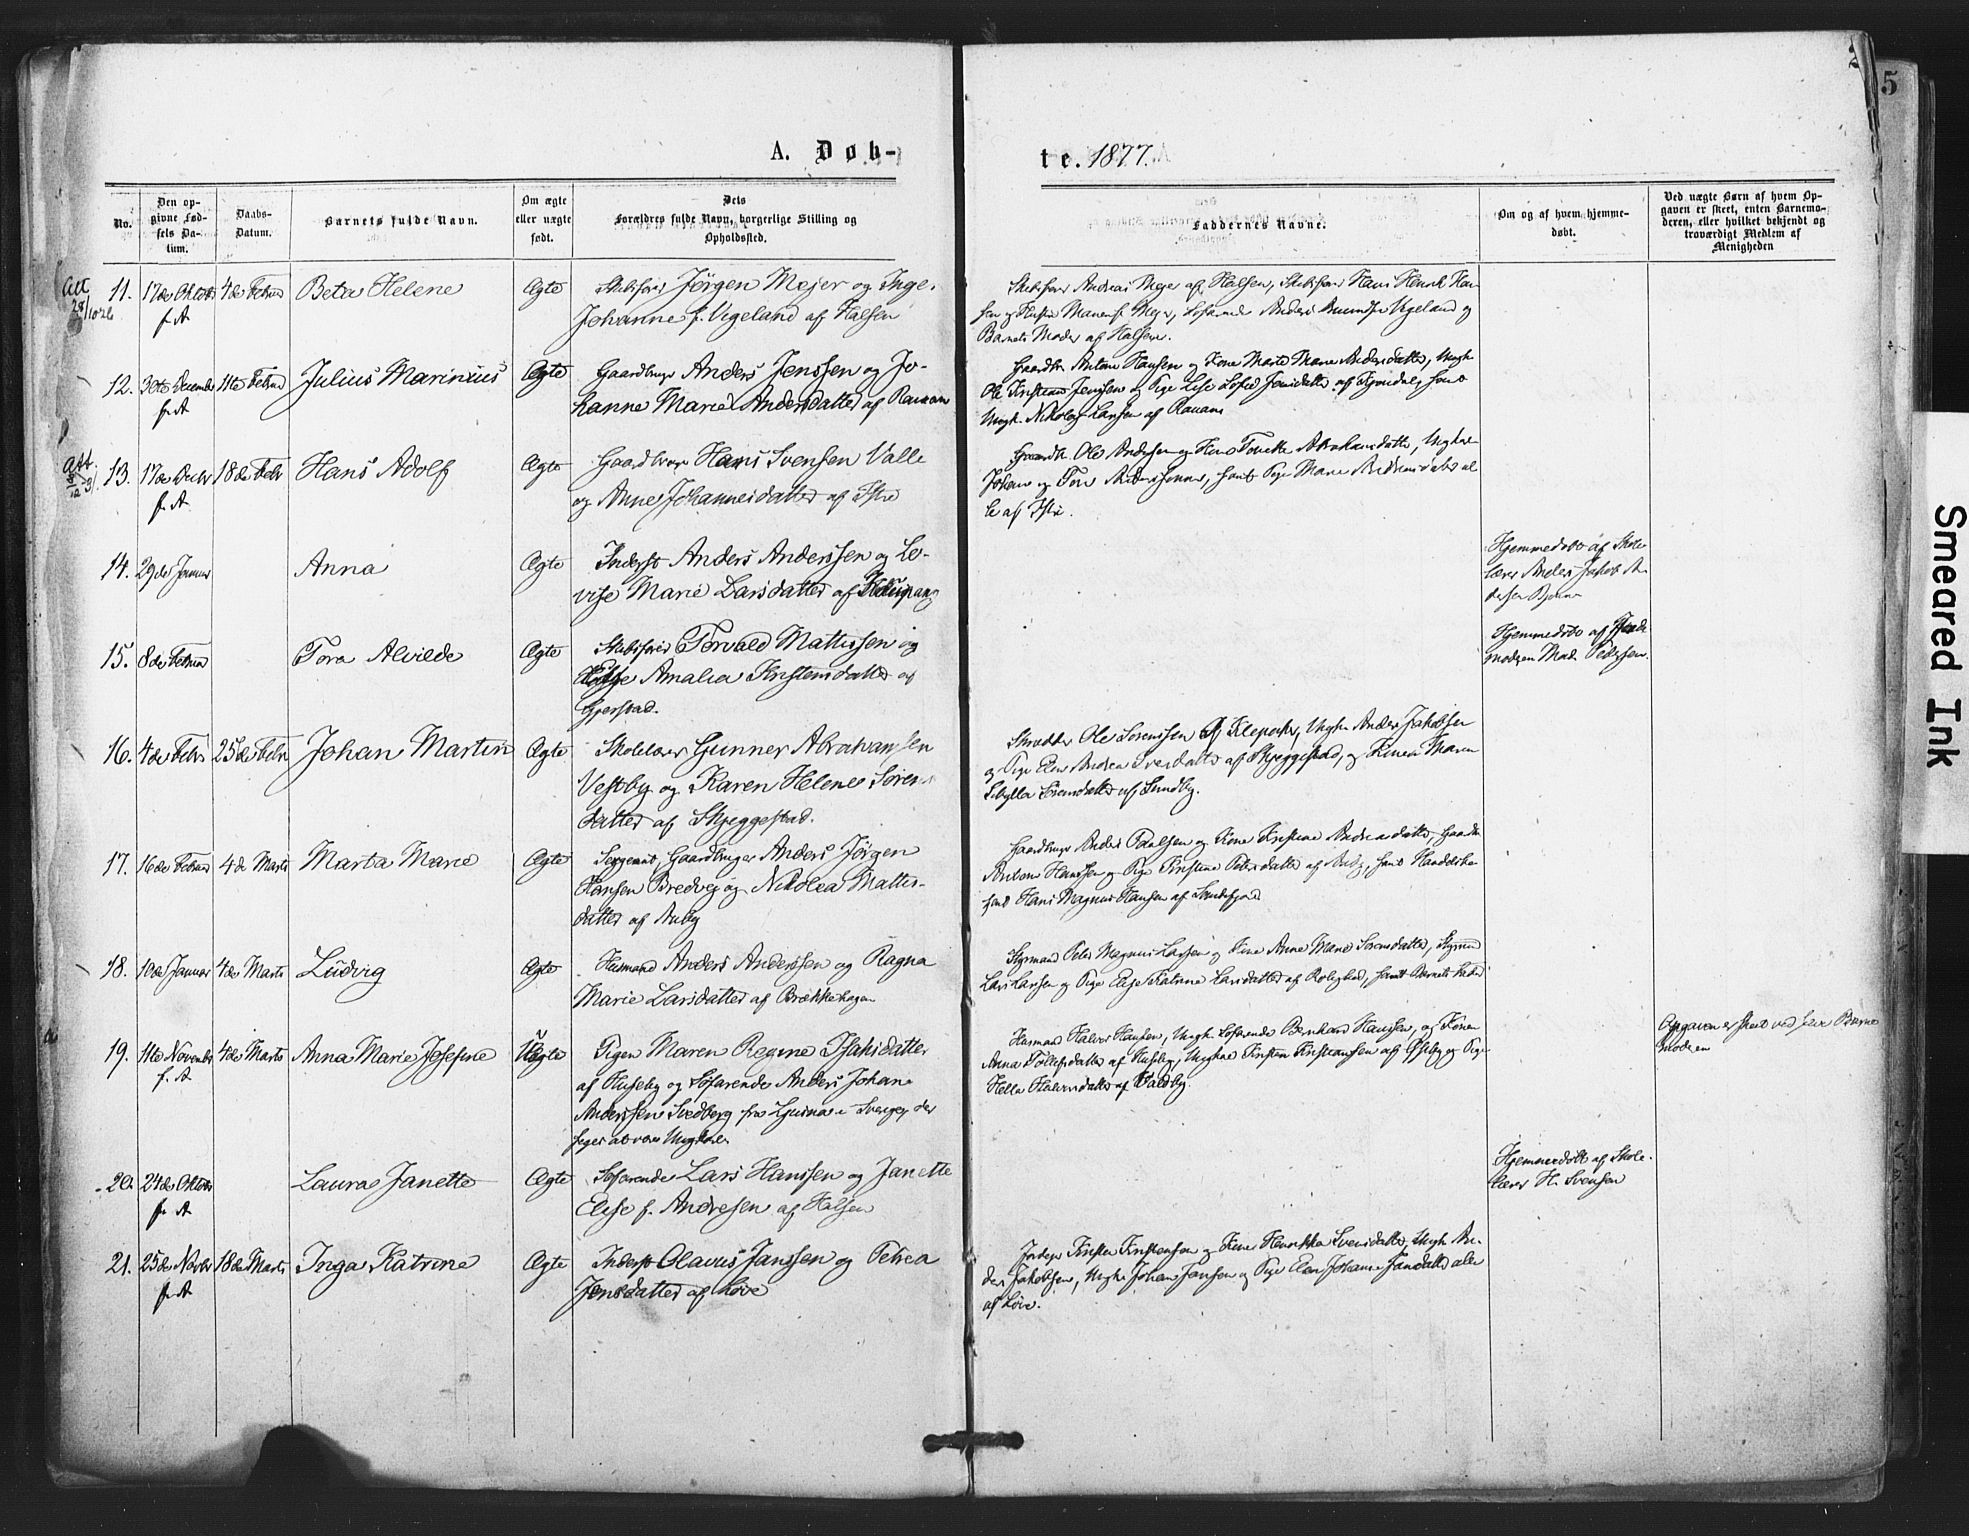 5
A. Døb-
te. 1877.
No.
Den op-
givne Fød-
sels Da-
tum.
Daabs-
Datum.
Barnets fulde Navn.
Om ægte
eller uægte
født.
Dets
Forældres fulde Navn, borgerlige Stilling og
Opholdssted.
Faddernes Navne.
Om og af hvem hjemme-
døbt.
Ved uægte Børn af hvem Op-
gaven er skeet, enten Barnemo-
deren, eller hvilket bekjendt og
troværdigt Medlem af
Menigheden
Att
28/10 26
11. 17de Oktob 4de Februar Beta Helene Ægte Skibsfører Jörgen Mejer og Inge-
f. A Johanne f. Vigeland af Halsen
Skibsfører Andreas Mejer af Halsen, Skibsfører Hans Henrik Han-
sen og Hustru Maren f. Mejer, Söfarende Anders Vigeland og
Barnets Moder af Halsen.
12. 30te December 11te Februar Julius Marinius Ægte Gaardbruger Anders Jenssen og Jo-
f. A hanne Marie Andersdatter af Rauan
Gaardbr Anton Hansen og Kone Marte Marie Andersdatter, Ungk.
Ole Kristian Jenssen og Pige Lise Sofie Jensdatter af samt
Ungk. Nikolay Larsen af Rauan
Att.
13. 17de Decbr 18de Febr Hans Adolf Ægte Gaardbruger Hans Svensen Valle
f. A og Anne Johannesdatter af Istre
Gaardbr. Ole Andersen og Kone Abrahamsdatter, Ungkar
Johan og Tore Anderssönner, samt Pige Maren Andreasdatter al-
le af Istre.
14. 29de Januar Anna Ægte Inderst Anders Anderssen og Lo-
vise Marie Larsdatter af Kaupang
Hjemmedöbt af Skole-
lærer Anders Jakob An-
dersen Bjonnes
15. 8de Februar Tora Alvilde Ægte Skibsförer Torvald Mattissen og
Amalia Kristensdatter af
Gjerstad.
Hjemmedöbt af Jorde-
modren Mad. Pedersen.
16. 4de Febr 25de Febr Johan Martin Ægte Skolelærer Gunner Abrahamsen
Vestby og Karen Helene Sören-
datter af Skjeggestad.
Skrædder Ole Sörenssen af Klepaker, Ungk. Anders Jakobsen
og Pige Elen Andrea Svendsdatter af Skjeggestad, og Konen Maren
Sibylla Sörensdatter af Sundby.
17. 16de Februar 4de Marts Marta Marie Ægte Sergeant, Gaardbruger Anders Jörgen
Hansen Bredvej og Nikolea Mattis-
datter af Auby
Gaardbruger Anders Paulsen og Kone Kristine Andreasdatter, Gaardbr
Anton Hansen og Pige Kristine Petersdatter af Auby, samt Handelsbe-
tjent Hans Magnus Hansen af Sandefjord
18. 10de Januar 4de Marts Ludvig Ægte Husmand Anders Anderssen og Ragna
Marie Larsdatter af Brækkehagen
Styrmand Peter Magnus Larsen og Kone Anne Marie Sörensdatter, Styrmd
Lars Larsen og Pige Elise Katrine Larsdatter af Rolighed, samt Barnets Fader
19. 11te November 4de Marts Anna Marie Josefine Uægte Pigen Maren Regine Isaksdatter
f. A af Huseby og Söfarende Anders Johan
Anderssen Svedberg fra Ljusna i Sverige, der
siges at være Ungkarl
Husmand Halvor Hansen, Ungk. Söfarende Bernhard Hanssen, og Konen
Anna Tollefsdatter af Huseby, Ungkar Kristen Kristiansen af Østby og Pige
Hella Halvorsdatter af Valby
Opgaven er skeet ved selve Barne-
modren
20. 24de Oktober Laura Janette Ægte Söfarende Lars Hanssen og Janette
f. A Elise f. Andresen af Halsen
Hjemmedöbt af Skole-
lærer H. Svensen
21. 25de Novbr 18de Marts Inga Katrine Ægte Inderst Olavus Janssen og Petrea
f. A Jensdatter af Löve
Inderst Kristen Kristensen og Kone Henrikka Svensdatter, Ungk. An-
ders Jakobsen, Ungk. Johan Jansen og Pige Elen Johanne Jansdatter alle
af Löve.
Smeared Ink